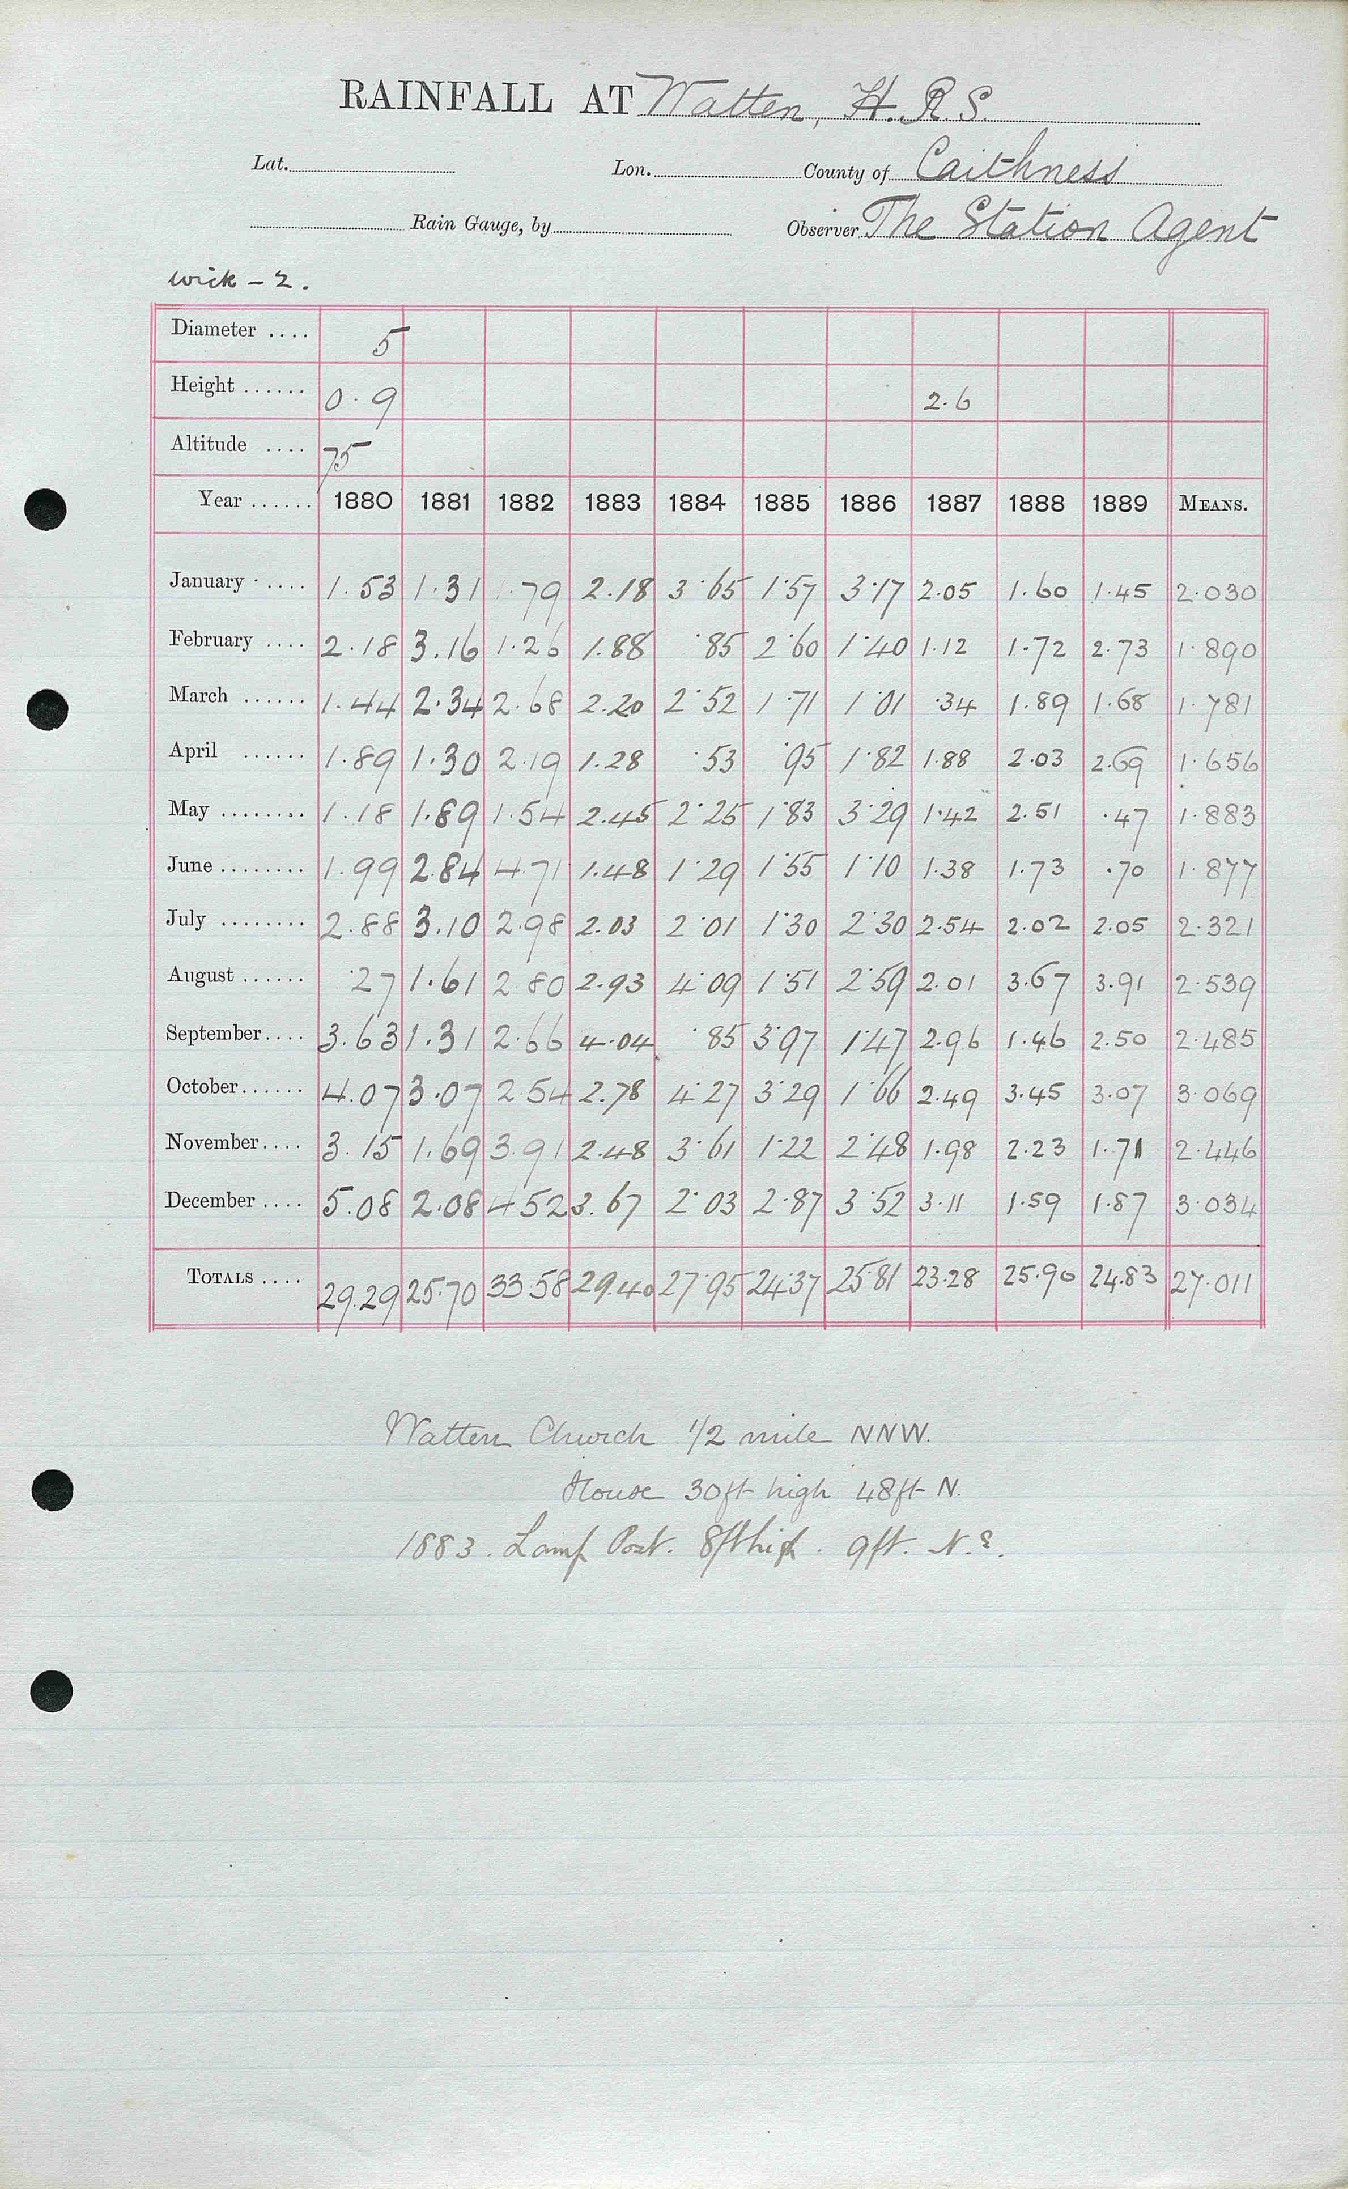 RAINFALL AT Watten, H.R.S.
Lat. Lon. County of Caithness
Rain Gauge, by Observer The Station Agent
Wick - 2.
Diameter .... 5
Height ...... 0.9 2.6
Altitude .... 75
Year ...... 1880 1881 1882 1883 1884 1885 1886 1887 1888 1889 MEANS.
January ..... 1.53 1.31 1.79 2.18 3.65 1.57 3.17 2.05 1.60 1.45 2.030
February .... 2.18 3.16 1.26 1.88 .85 2.60 1.40 1.12 1.72 2.73 1.890
March ...... 1.44 2.34 2.68 2.20 2.52 1.71 1.01 .34 1.89 1.68 1.781
April ...... 1.89 1.30 2.19 1.28 .53 .95 1.82 1.88 2.03 2.69 1.656
May ........ 1.18 1.89 1.54 2.45 2.25 1.83 3.29 1.42 2.51 .47 1.883
June ........ 1.99 2.84 4.71 1.48 1.29 1.55 1.10 1.38 1.73 .70 1.877
July ........ 2.88 3.10 2.98 2.03 2.01 1.30 2.30 2.54 2.02 2.05 2.321
August ...... .27 1.61 2.80 2.93 4.09 1.51 2.59 2.01 3.67 3.91 2.539
September .... 3.63 1.31 2.66 4.04 .85 3.97 1.47 2.96 1.46 2.50 2.485
October ...... 4.07 3.07 2.54 2.78 4.27 3.29 1.66 2.49 3.45 3.07 3.069
November .... 3.15 1.69 3.91 2.48 3.61 1.22 2.48 1.98 2.23 1.71 2.446
December .... 5.08 2.08 4.52 3.67 2.03 2.87 3.52 3.11 1.59 1.87 3.034
TOTALS .... 29.29 25.70 33.58 29.40 27.95 24.37 25.81 23.28 25.90 24.83 27.011
Watten Church 1/2 mile NNW.
House 30ft high 48ft N.
1883. Lamp Post. 8ft high. 9ft. N.E.